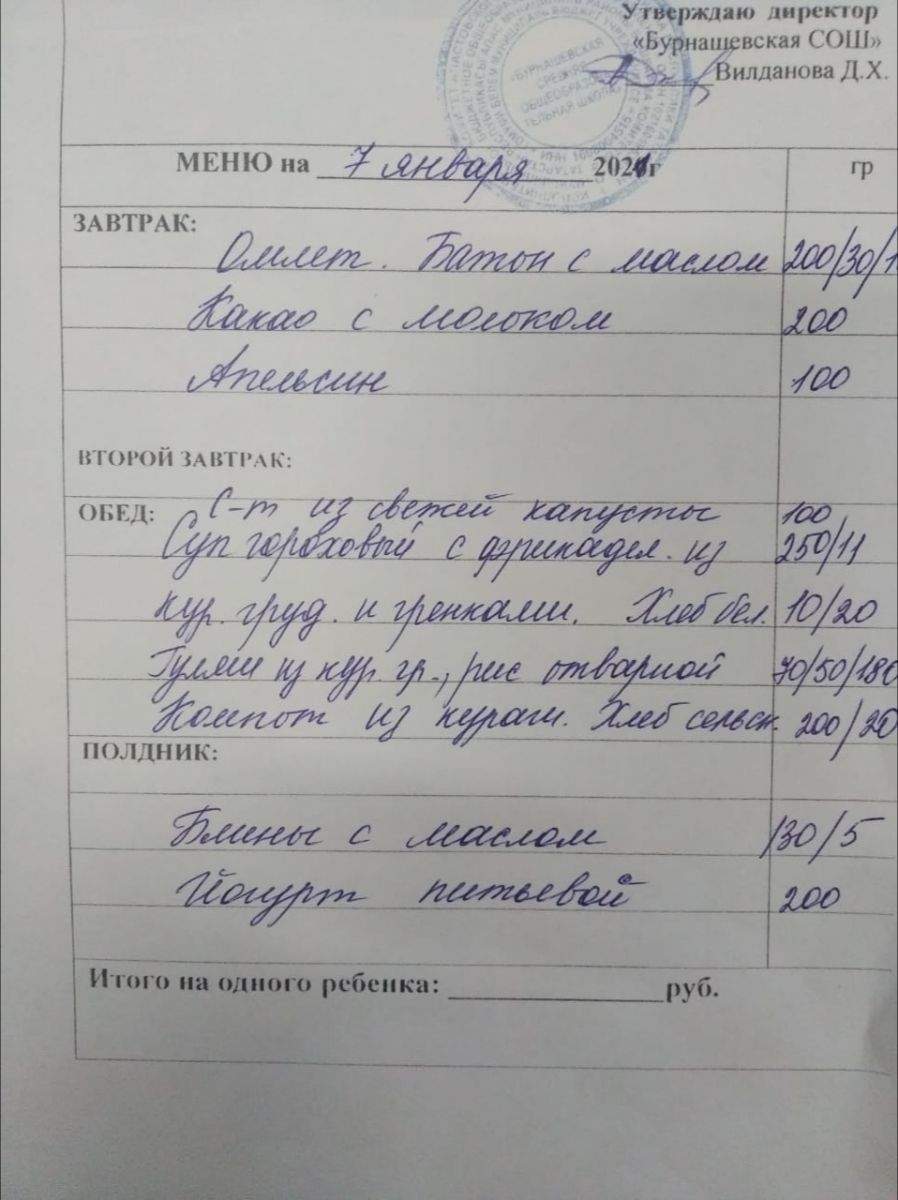 Утверждаю директор
«Бурнашевская СОШ»
Вилданова Д.Х.
«БУРНАШЕВСКАЯ
СРЕДНЯЯ
ОБЩЕОБРАЗОВА
ТЕЛЬНАЯ ШКОЛА»
МЕНЮ на 7 января 2021г гр
ЗАВТРАК:
Омлет. Батон с маслом 200/30/1
Какао с молоком 200
Апельсин 100
ВТОРОЙ ЗАВТРАК:
ОБЕД: С-т из свежей капусты 100
Суп гороховый с фрикадел. из 250/11
кур. груд. и гренками. Хлеб бел. 10/20
Гуляш из кур. гр., рис отварной 70/50/180
Компот из кураги. Хлеб сельск. 200/20
ПОЛДНИК:
Блины с маслом 130/5
Йогурт питьевой 200
Итого на одного ребенка: ______________руб.